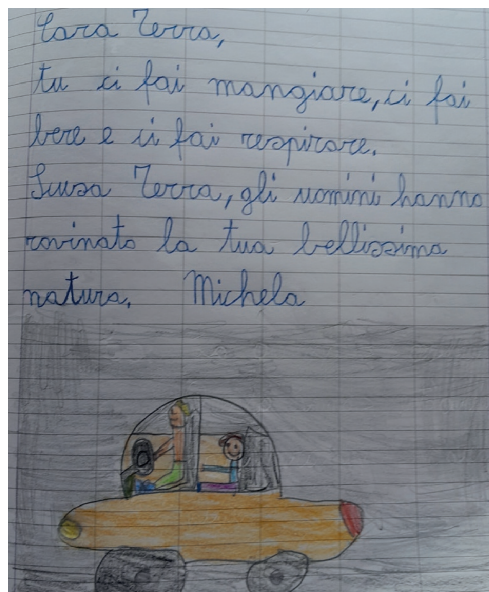 Cara Terra,
tu ci fai mangiare, ci fai
bere e ci fai respirare.
Scusa Terra, gli uomini hanno
rovinato la tua bellissima
natura. Michela